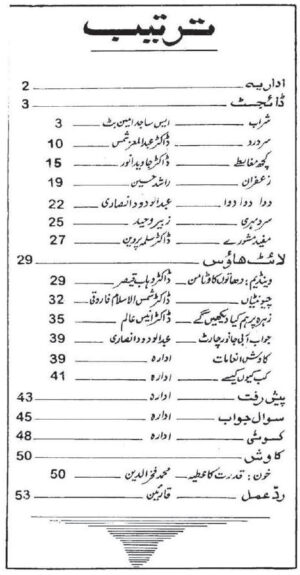 ترتیب
اداریہ 2
ڈائجسٹ 3
شراب ایس ساجد امین بٹ 3
سردرد ڈاکٹر عبدالمعز شمس 10
کچھ مغالطے ڈاکٹر جاوید انور 15
زعفران راشد حسین 19
دوا دوا دوا عبدالودود انصاری 22
سردمہری زبیر وحید 25
مفید مشورے ڈاکٹر سلمہ پروین 27
لائٹ ھاؤس 29
وینڈیم: دھاتوں کا وٹامن ڈاکٹر وہاب قیصر 29
چیونٹیاں ڈاکٹر شمس الاسلام فاروقی 32
زہرہ پر ہم کیا دیکھیں گے ڈاکٹر انیس عالم 35
جواب آبی جانور چارٹ عبدالودود انصاری 39
کاوش انعامات ادارہ 39
کب کیوں کیسے ادارہ 41
پیش رفت ادارہ 43
سوال جواب ادارہ 45
کسوٹی ادارہ 48
کاوش 50
خون: قدرت کا عطیہ محمد فخرالدین 50
ردعمل قارئین 53